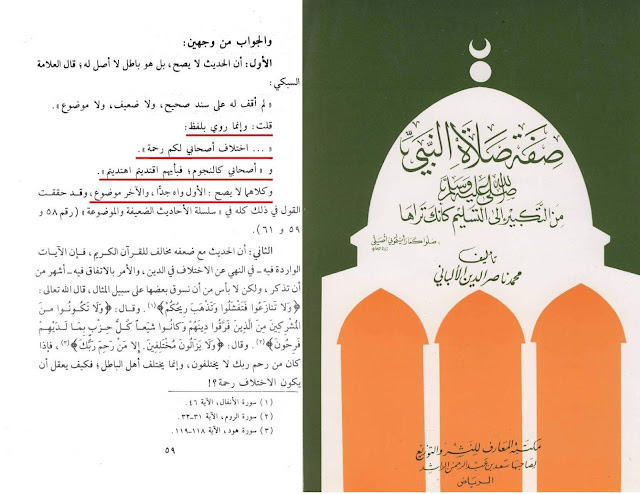 والجواب من وجهين:
الأول: أن الحديث لا يصح، بل هو باطل لا أصل له؛ قال العلامة
السبكي:
«لم أقف له على سند صحيح، ولا ضعيف، ولا موضوع».
قلت: وإنما روي بلفظ:
«... اختلاف أصحابي لكم رحمة».
و «أصحابي كالنجوم؛ فبأيهم اقتديتم اهتديتم».
وكلاهما لا يصح: الأول واه جدًّا، والآخر موضوع، وقد حققت
القول في ذلك كله في «سلسلة الأحاديث الضعيفة والموضوعة» (رقم ٥٨ و
٥٩ و ٦١).
الثاني: أن الحديث مع ضعفه مخالف للقرآن الكريم، فإن الآيات
الواردة فيه - في النهي عن الاختلاف في الدين، والأمر بالاتفاق فيه - أشهر من
أن تذكر، ولكن لا بأس من أن نسوق بعضها على سبيل المثال، قال الله تعالى:
﴿وَلَا تَنَازَعُوا فَتَفْشَلُوا وَتَذْهَبَ رِيحُكُمْ﴾(١). وقال: ﴿وَلَا تَكُونُوا مِنَ
المُشْرِكِينَ مِنَ الَّذِينَ فَرَّقُوا دِينَهُمْ وَكَانُوا شِيَعاً كُلُّ حِزْبٍ بِمَا لَدَيْهِمْ
فَرِحُونَ﴾(٢). وقال: ﴿وَلَا يَزَالُونَ مُخْتَلِفِينَ. إِلَّا مَن رَحِمَ رَبُّكَ﴾(٣)، فإذا
كان من رحم ربك لا يختلفون، وإنما يختلف أهل الباطل؛ فكيف يعقل أن
يكون الاختلاف رحمة؟!
(١) سورة الأنفال، الآية ٤٦.
(٢) سورة الروم، الآية ٣١-٣٢.
(٣) سورة هود، الآية ١١٨-١١٩.
٥٩
صِفَة صَلاة النَّبِيِّ
صَلَّى اللهُ عَلَيْهِ وَسَلَّمَ
مِنَ التَّكبِيرِ إلى التَّسْلِيمِ كأنَّكَ تَرَاهَا
«صلوا كما رأيتموني أصلي»
تأليف
محمد ناصر الدين الألباني
مكتبة المعارف للنشر والتوزيع
لصاحبها سعد بن عبد الرحمن الراشد
الرياض